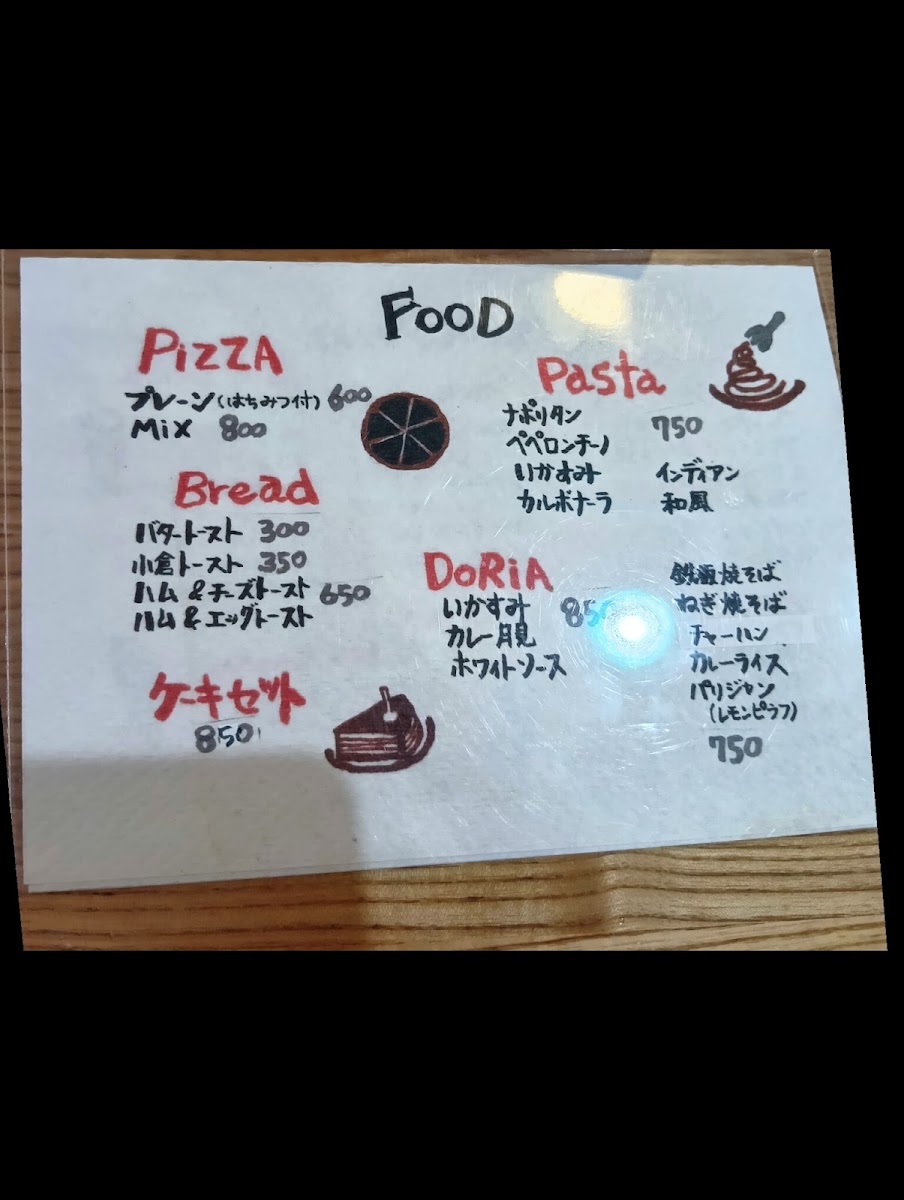 FOOD
PiZZA
プレーン(はちみつ付) 600
Mix 800
Bread
バタートースト 300
小倉トースト 350
ハム&チーズトースト 650
ハム&エッグトースト
ケーキセット
850
Pasta
ナポリタン 750
ペペロンチーノ
いかすみ インディアン
カルボナーラ 和風
DoRiA
いかすみ 850
カレー月見
ホワイトソース
鉄板焼そば
ねぎ焼そば
チャーハン
カレーライス
パリジャン
(レモンピラフ)
750